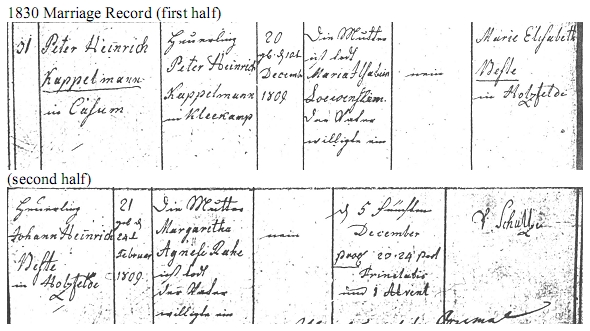 1830 Marriage Record (first half)
31
Peter Heinrich
Kappelmann
in Casum
Heuerling
Peter Heinrich
Kappelmann
in Kleekamp
20
geb d 10t
Decemb
1809
Die Mutter
ist todt
Maria Ilsabein
Loewenstein.
Der Vater
willigte ein
nein
Marie Elisabeth
Beste
in Holzfelde
(second half)
Heuerling
Johann Heinrich
Beste
in Holzfelde
21
geb d
24t
Februar
1809
Die Mutter
Margaretha
Agnese Rahe
ist todt
Der Vater
willigte ein
nein
d 5 fünften
December
proc 20-24 post
Trinitatis
und 1 Advent
P Schultze